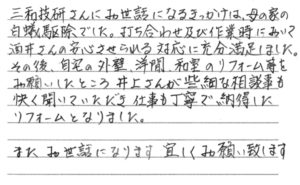 三和技研さんにお世話になるきっかけは、母の家の
白蟻駆除でした。打ち合わせ及び作業時において
酒井さんの安心させられる対応に充分満足しました。
その後、自宅の外壁、洋間、和室のリフォーム等を
お願いしたところ井上さんが些細な相談事も
快く聞いていただき仕事も丁寧で納得した
リフォームとなりました。
またお世話になります宜しくお願い致します